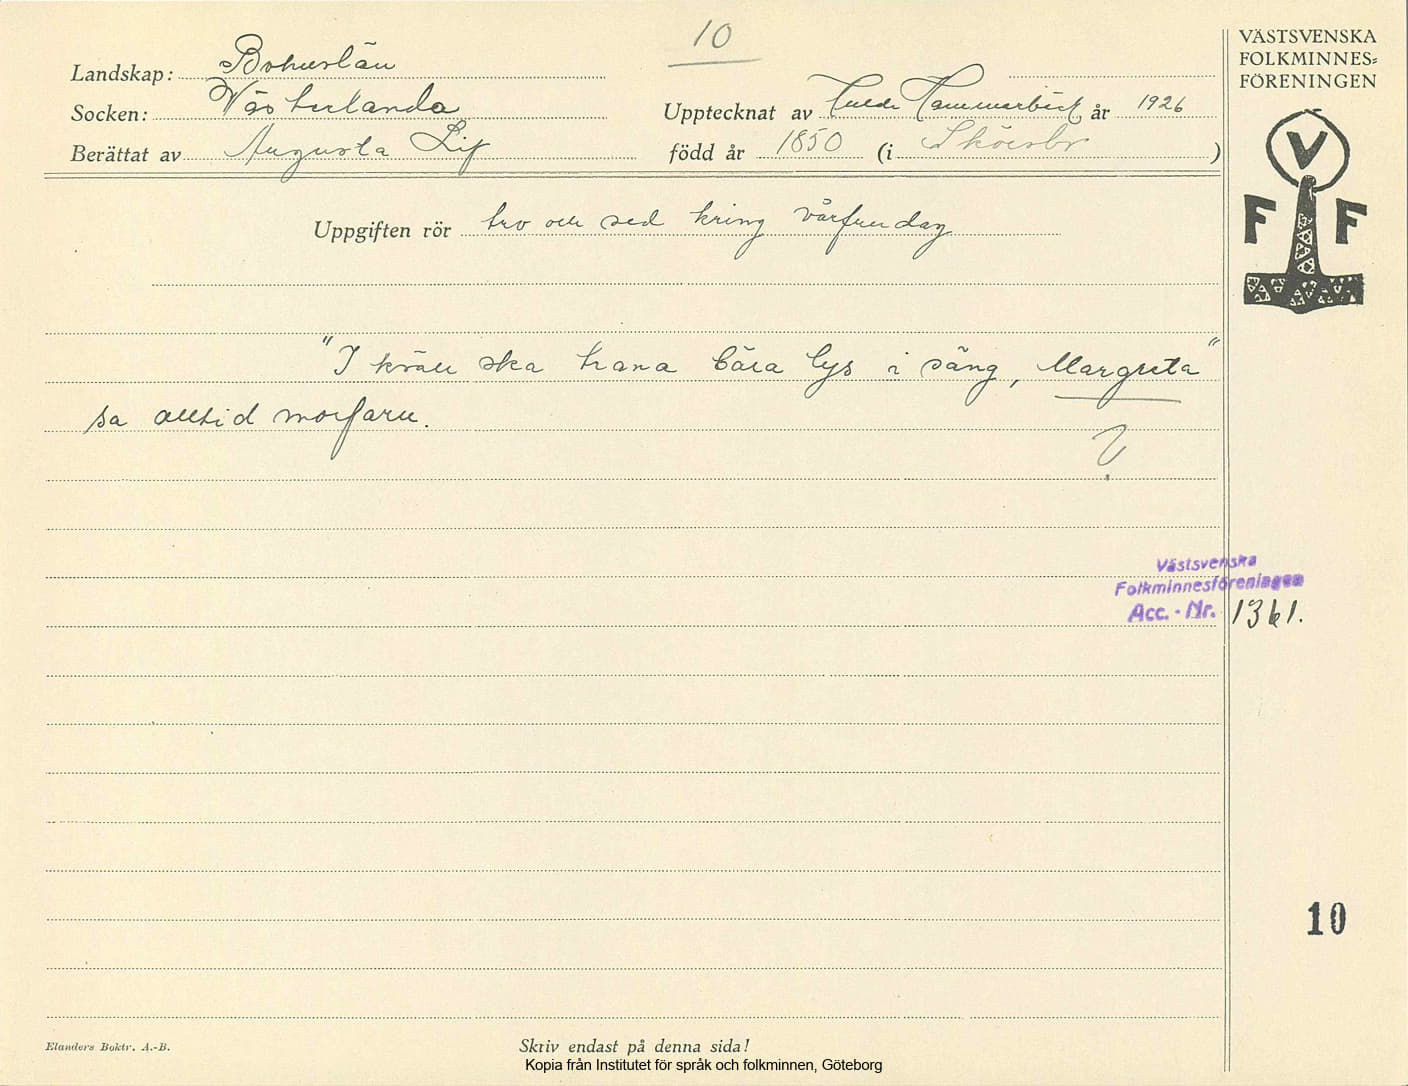 10
VÄSTSVENSKA
FOLKMINNES=
FÖRENINGEN
Landskap: Bohuslän
Socken: Västerlanda
Upptecknat av Hulda Hammarbäck år 1926
Berättat av Augusta Lif
född år 1850 (i )
V
F F
Uppgiften rör tro och sed kring vårfrudag
"I kväll ska trana bära lys i säng, Margreta"
sa alltid morfarn.
?
Västsvenska
Folkminnesföreningen
Acc. - Nr. 1361.
10
Elanders Boktr. A.-B.
Skriv endast på denna sida!
Kopia från Institutet för språk och folkminnen, Göteborg